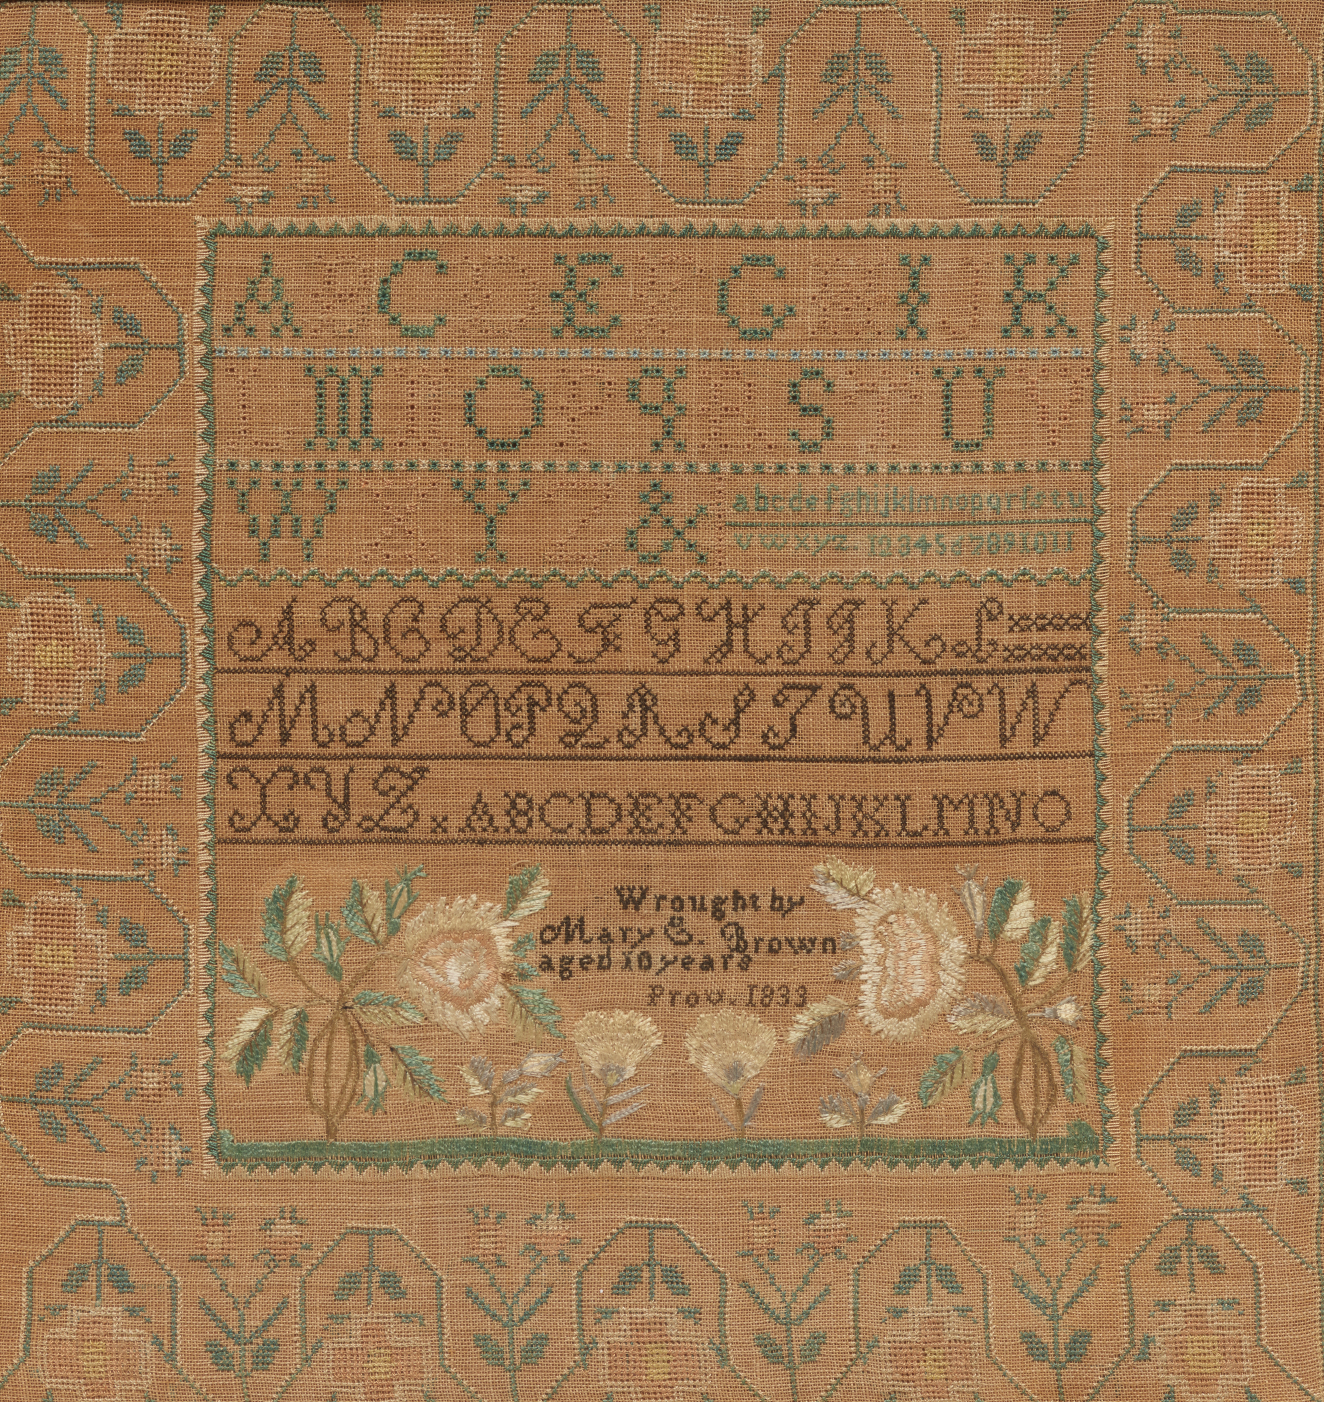 A B C D E F G H I J K
L M N O P q R S T U V
W X Y Z &
abcdefghijklmnopqrſstu
vwxyz 1234567891011
A B C D E F G H I J K L
M N O P Q R S T U V W
X Y Z x A B C D E F G H I J K L M N O
Wrought by
Mary E. Brown
aged 10 years
Prov. 1833